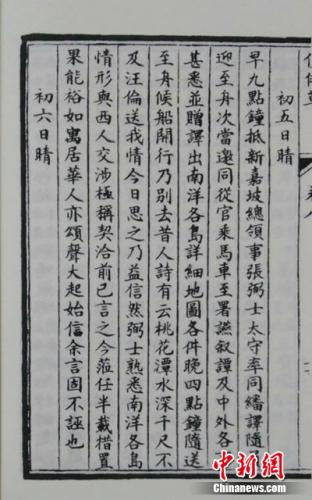 初五日晴
早九點鐘抵新嘉坡總領事張弼士太守率同繙譯隨
迎至舟次當邀同從官乘馬車至署讌叙譚及中外各
甚悉並贈譯出南洋各島詳細地圖各件晚四點鐘隨送
至舟候船開行乃別去昔人詩有云桃花潭水深千尺不
及汪倫送我情今日思之乃益信然弼士熟悉南洋各島
情形與西人交涉極稱契洽前已言之今蒞任半載措置
果能裕如寓居華人亦頌聲大起始信余言固不誣也
初六日晴
中新网
www.chinanews.com